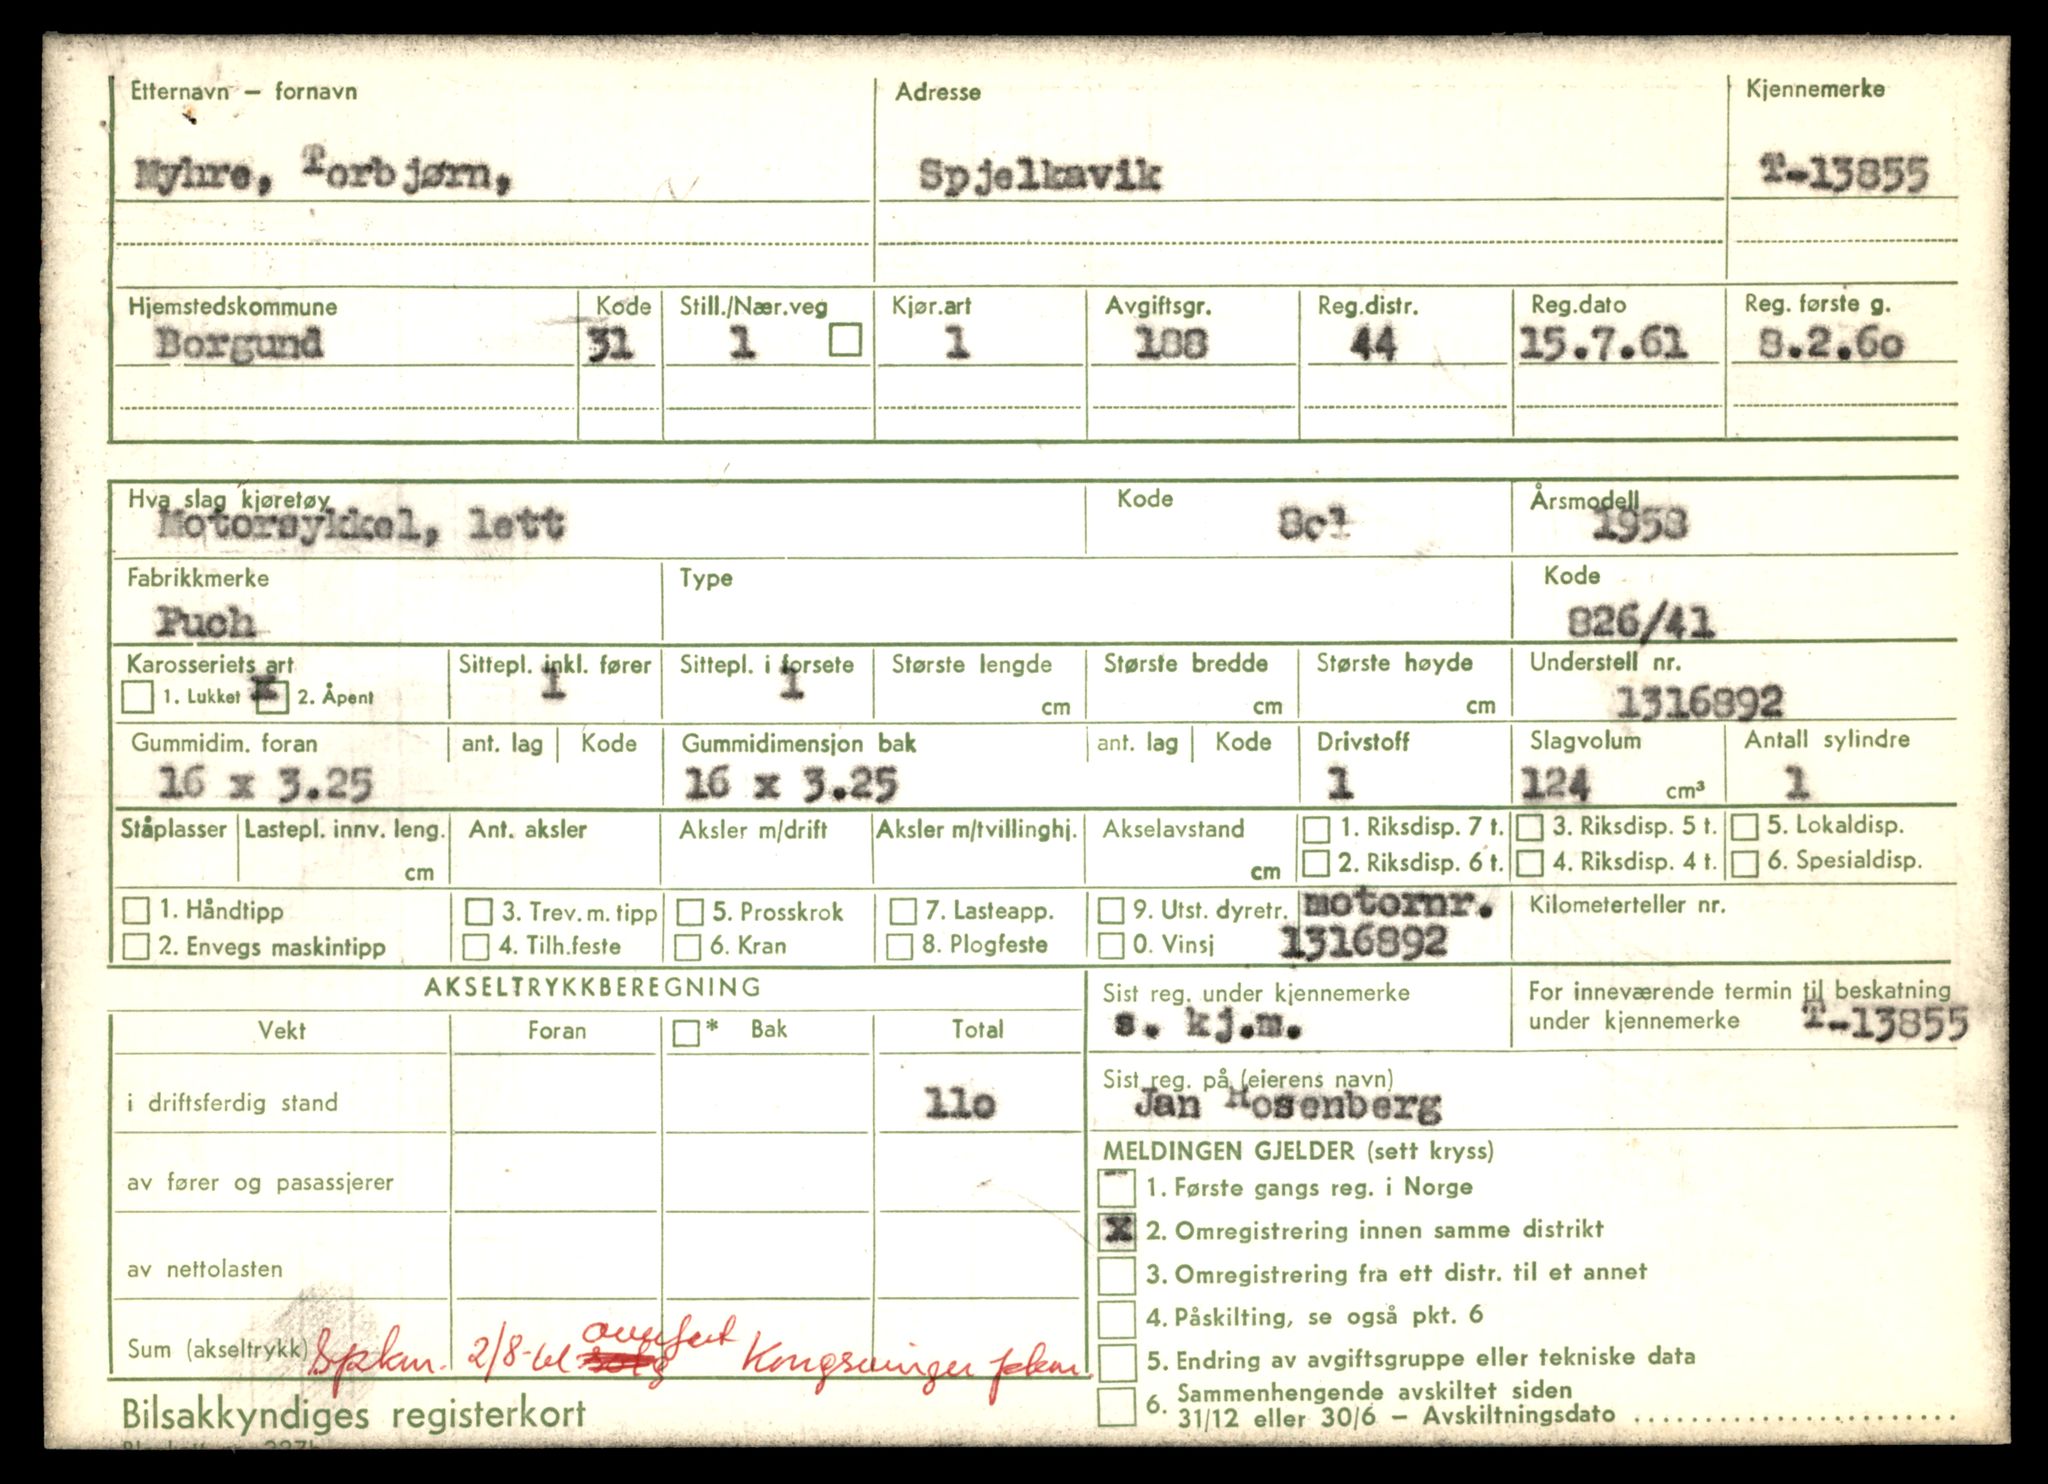 Etternavn – fornavn Adresse Kjennemerke
Myhre, Torbjørn, Spjelkavik T-13855
Hjemstedskommune Kode Still./Nær.veg Kjør.art Avgiftsgr. Reg.distr. Reg.dato Reg. første g.
Borgund 31 1 1 188 44 15.7.61 8.2.60
Hva slag kjøretøy Kode Årsmodell
Motorsykkel, lett 8cl 1958
Fabrikkmerke Type Kode
Puch 826/41
Karosseriets art Sittepl. inkl. fører Sittepl. i forsete Største lengde Største bredde Største høyde Understell nr.
1. Lukket x 2. Åpent 1 1 cm cm cm 1316892
Gummidim. foran ant. lag Kode Gummidimensjon bak ant. lag Kode Drivstoff Slagvolum Antall sylindre
16 x 3.25 16 x 3.25 1 124 cm³ 1
Ståplasser Lastepl. innv. leng. Ant. aksler Aksler m/drift Aksler m/tvillinghj. Akselavstand 1. Riksdisp. 7 t. 3. Riksdisp. 5 t. 5. Lokaldisp.
cm cm 2. Riksdisp. 6 t. 4. Riksdisp. 4 t. 6. Spesialdisp.
1. Håndtipp 3. Trev. m. tipp 5. Prosskrok 7. Lasteapp. 9. Utst. dyretr. motornr. Kilometerteller nr.
2. Envegs maskintipp 4. Tilh.feste 6. Kran 8. Plogfeste 0. Vinsj 1316892
AKSELTRYKKBEREGNING Sist reg. under kjennemerke For inneværende termin til beskatning
s. kj.m. under kjennemerke T-13855
Vekt Foran * Bak Total
Sist reg. på (eierens navn)
i driftsferdig stand 110 Jan Rosenberg
MELDINGEN GJELDER (sett kryss)
av fører og pasassjerer 1. Første gangs reg. i Norge
x 2. Omregistrering innen samme distrikt
av nettolasten 3. Omregistrering fra ett distr. til et annet
4. Påskilting, se også pkt. 6
overført
Sum (akseltrykk) Spkm. 2/8-61 solg Kongsvinger pkm. 5. Endring av avgiftsgruppe eller tekniske data
6. Sammenhengende avskiltet siden
Bilsakkyndiges registerkort 31/12 eller 30/6 – Avskiltningsdato